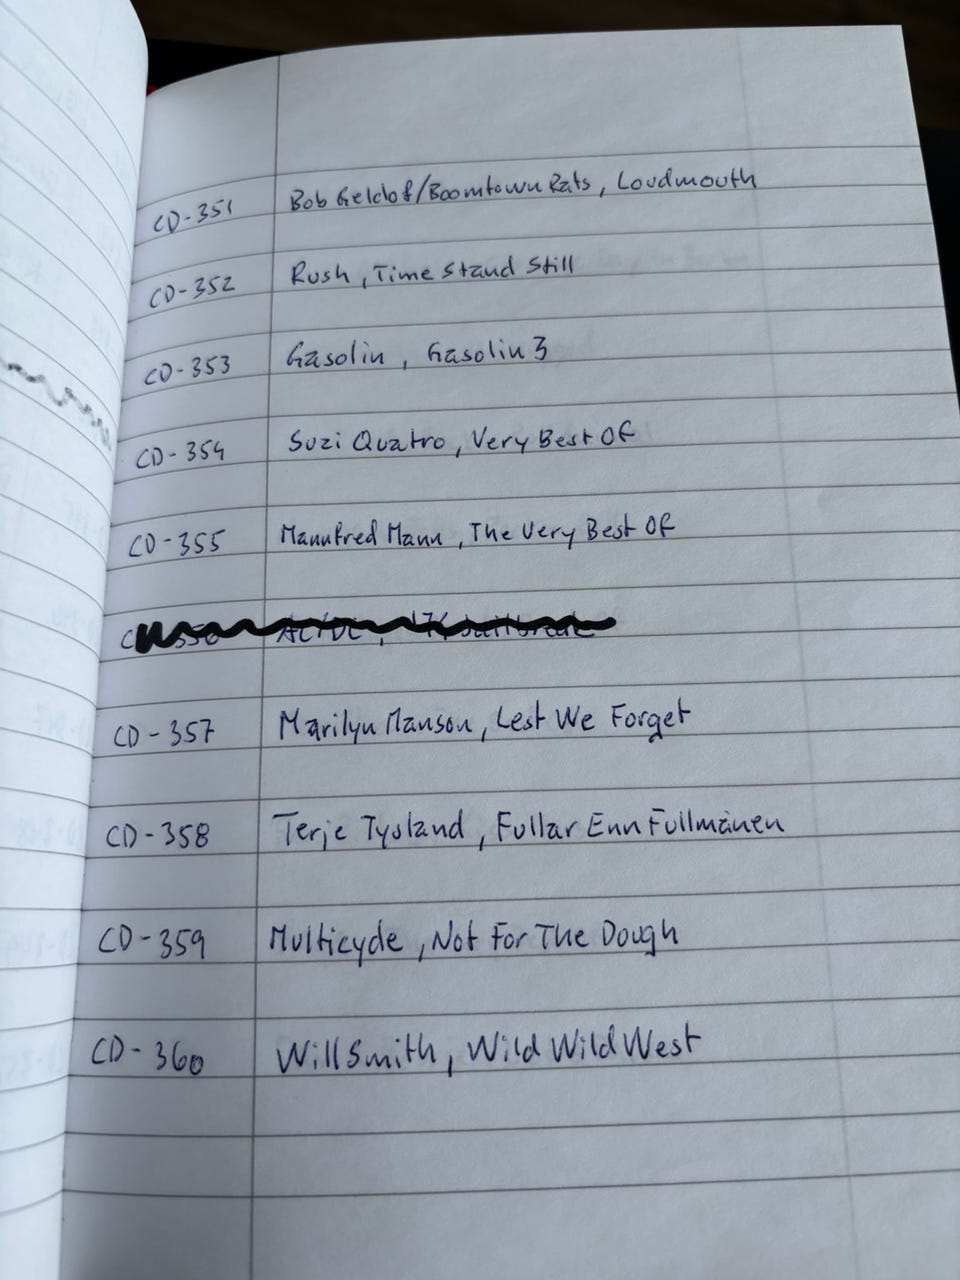 CD-351 Bob Geldof/Boomtown Rats, Loudmouth
CD-352 Rush, Time Stand Still
CD-353 Gasolin, Gasolin 3
CD-354 Suzi Quatro, Very Best Of
CD-355 Mannfred Mann, The Very Best Of
AC/DC, '74 Jailbreak
CD-357 Marilyn Manson, Lest We Forget
CD-358 Terje Tysland, Fullar Enn Fullmånen
CD-359 Multicyde, Not For The Dough
CD-360 Will Smith, Wild Wild West